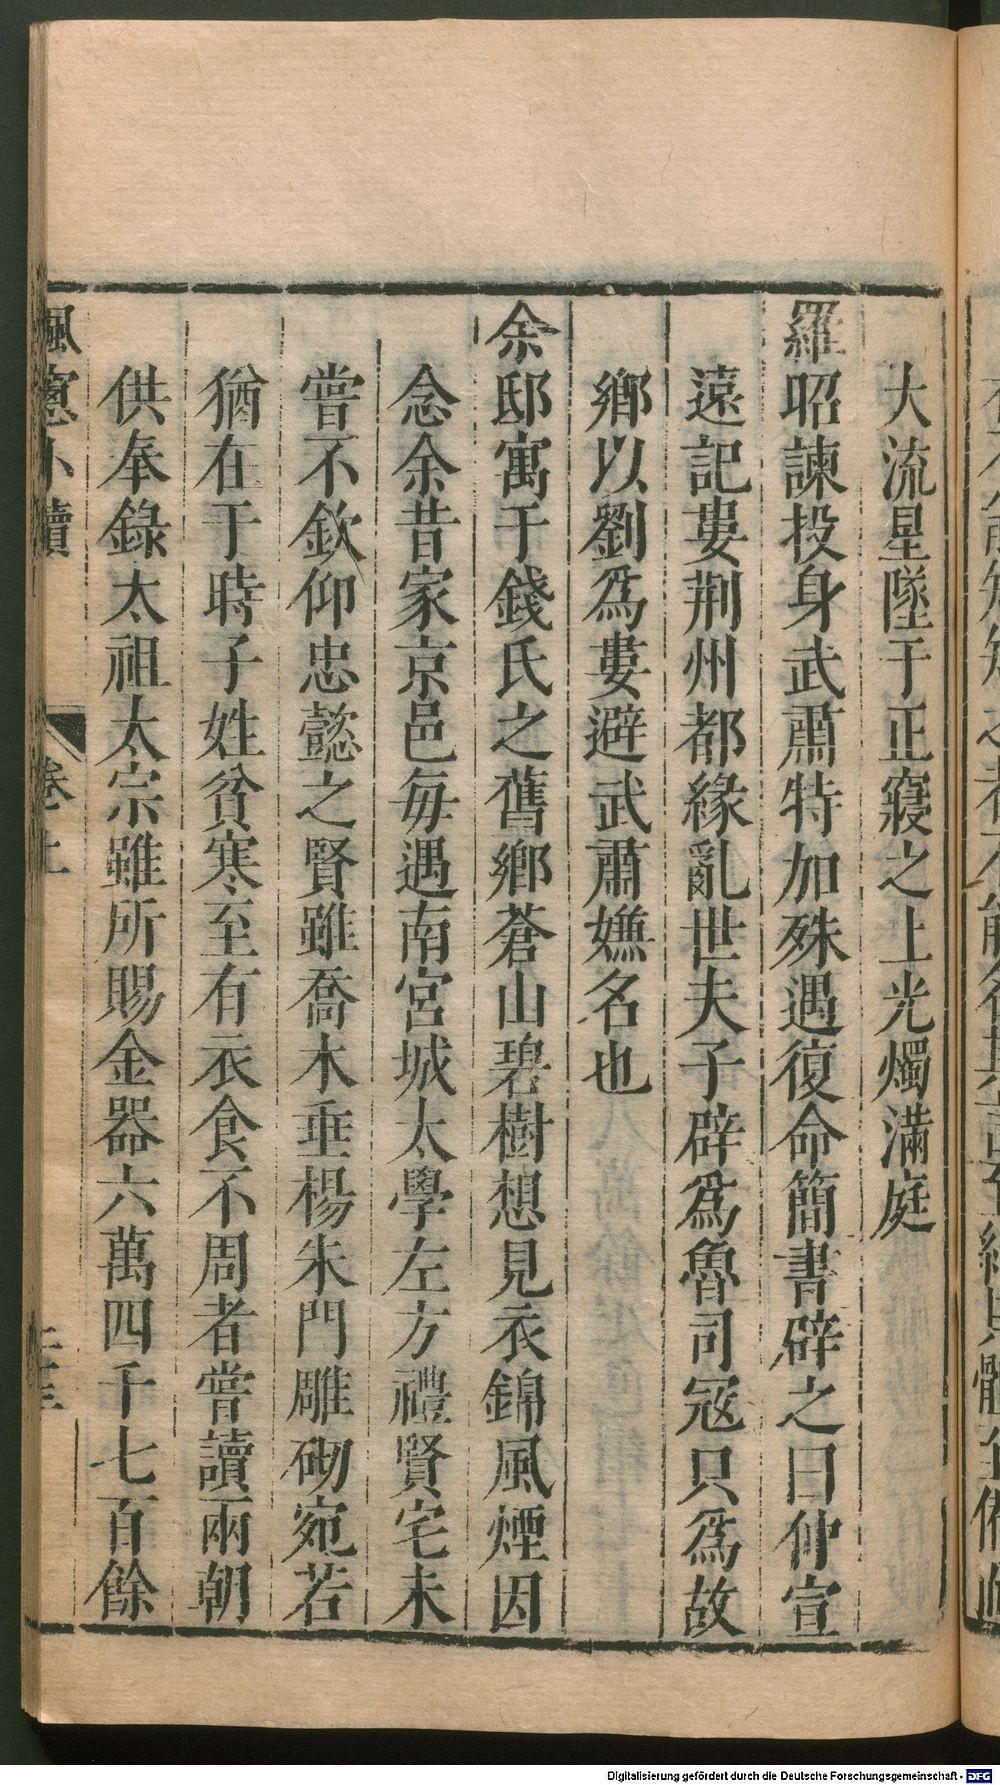 大流星墜于正寢之上光燭滿庭
羅昭諫投身武肅特加殊遇復命簡書辟之曰仲宣
遠記婁荆州都緣亂世夫子辟爲魯司冦只爲故
鄉以劉爲婁避武肅嫌名也
余邸寓于錢氏之舊鄉蒼山碧樹想見衣錦風煙因
念余昔家京邑每遇南宮城太學左方禮賢宅未
嘗不欽仰忠懿之賢雖喬木垂楊朱門雕砌宛若
猶在于時子姓貧寒至有衣食不周者嘗讀兩朝
供奉錄太祖太宗雖所賜金器六萬四千七百餘
楓窻小牘
卷上
Digitalisierung gefördert durch die Deutsche Forschungsgemeinschaft - DFG